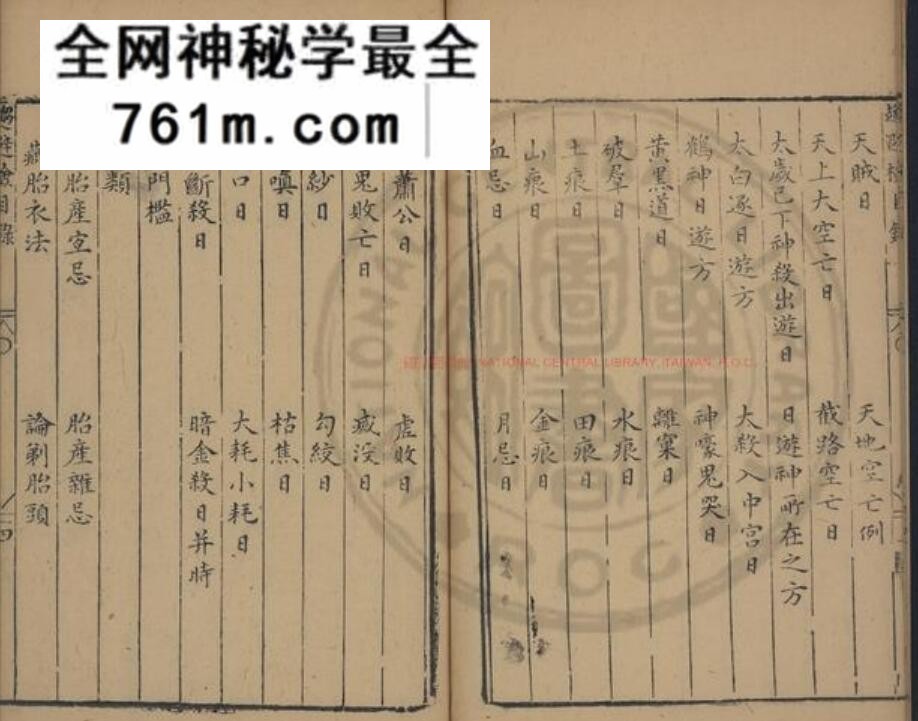 全网神秘学最全
761m.com
天賊日
天地空亡例
天上大空亡日
截路空亡日
太歲已下神殺出遊日
日遊神所在之方
太白逐日遊方
大殺入中宮日
鶴神日遊方
神嚎鬼哭日
黃黑道日
離窠日
破羣日
水痕日
土痕日
田痕日
山痕日
金痕日
血忌日
月忌日
蕭公日
虛敗日
鬼敗亡日
滅沒日
紗日
勾絞日
嗔日
枯焦日
口日
大耗小耗日
斷殺日
暗金殺日并時
門檻
類
胎產室忌
胎產雜忌
藏胎衣法
論剃胎頭
NATIONAL CENTRAL LIBRARY, TAIWAN, R.O.C.